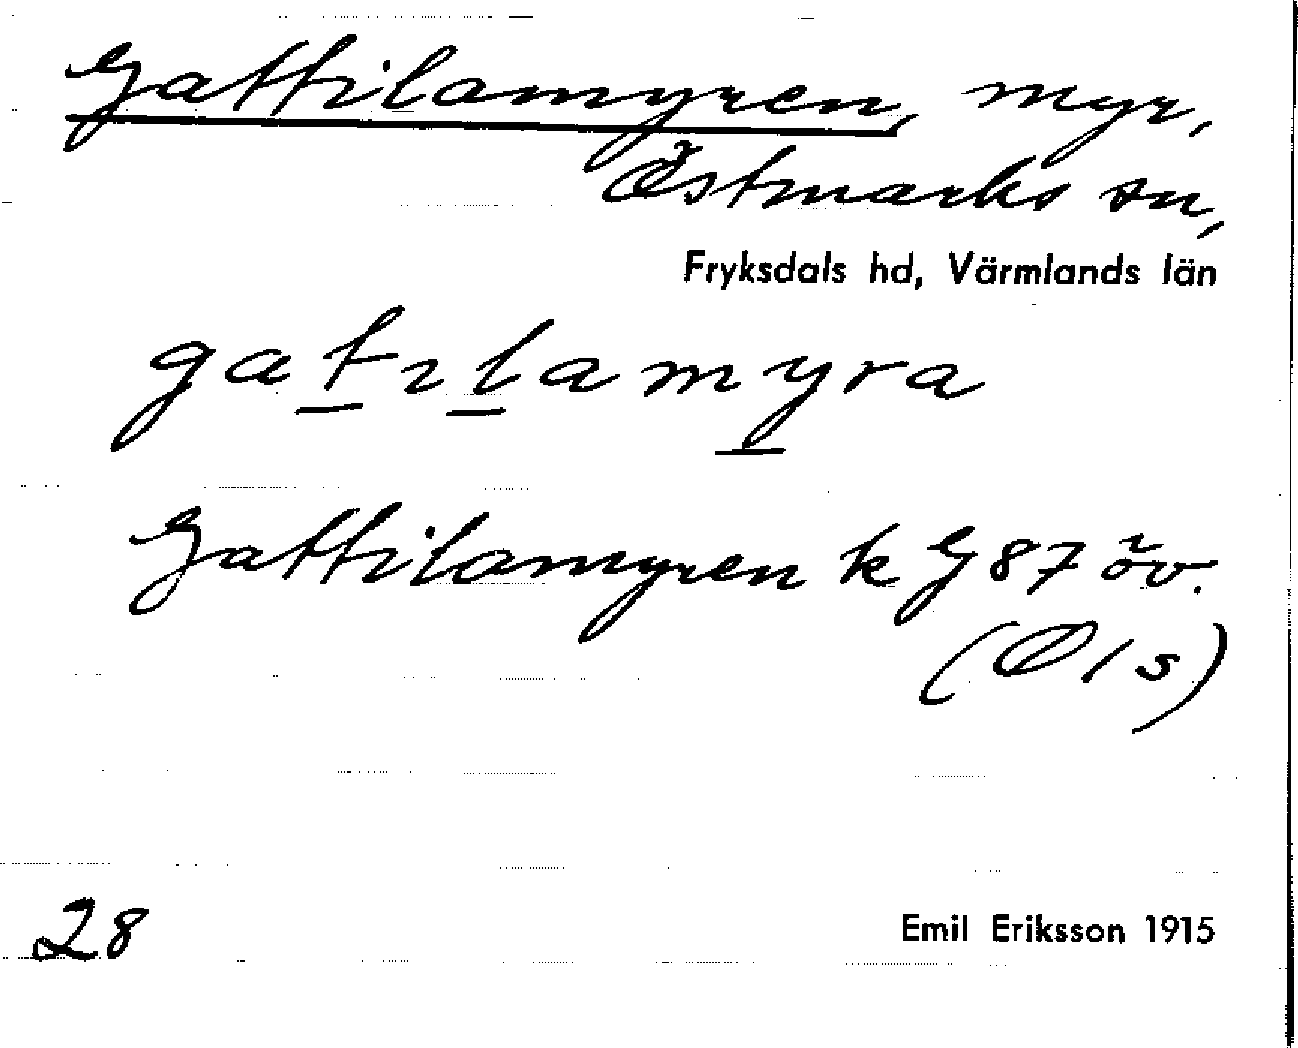 Gattilamyren, myr,
Östmarks sn,
Fryksdals hd, Värmlands län
gatılamyra
Gattilamyren k G 87 öv.
(Ø1s)
28
Emil Eriksson 1915